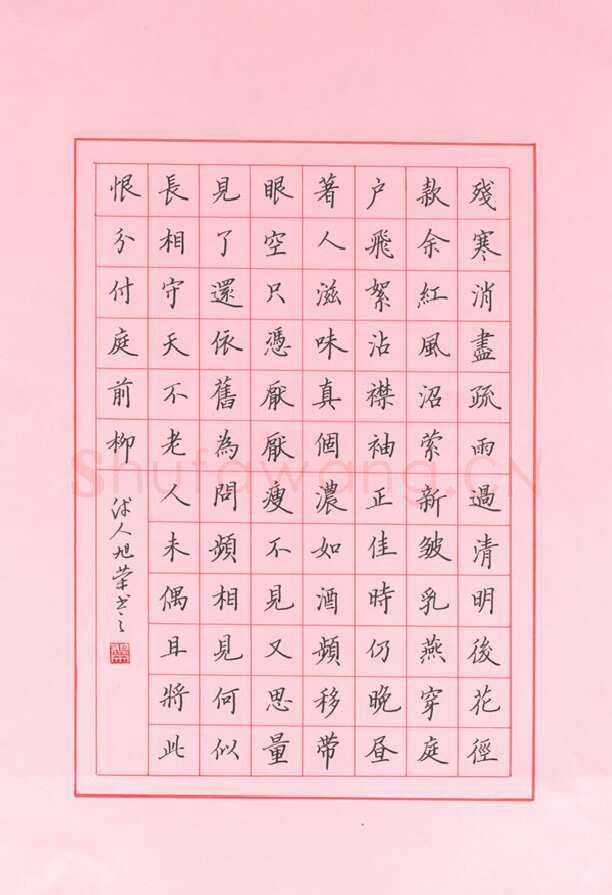 殘寒消盡疏雨過清明後花徑
款余紅風沼縈新皺乳燕穿庭
户飛絮沾襟袖正佳時仍晚昼
著人滋味真個濃如酒頻移帶
眼空只憑厭厭瘦不見又思量
見了還依舊為問頻相見何似
長相守天不老人未偶且將此
恨分付庭前柳
旭榮书之
Shufawang.CN